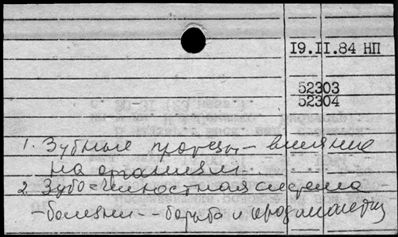 19.II.84 НП
52303
52304
1. Зубные протезы - влияние
на организм.
2. Зубо-челюстная система -
- болезни - борьба и профилактика